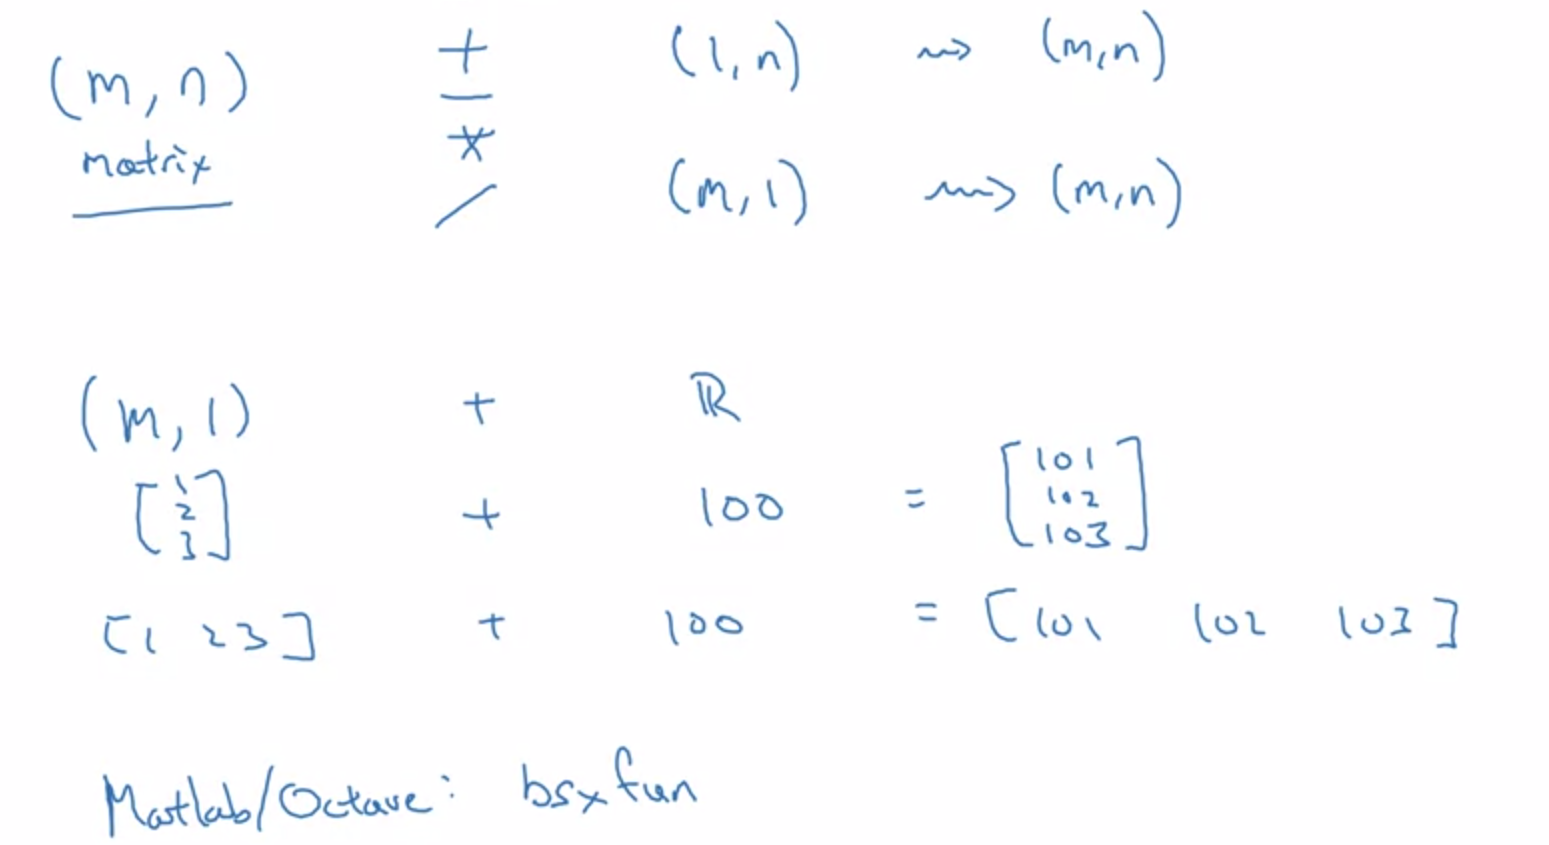 (m, n) + (1, n) ⇝ (m, n)
matrix - * / (m, 1) ⇝ (m, n)
(m, 1) + ℝ
[1 2 3] + 100 = [101 102 103]
[1 2 3] + 100 = [101 102 103]
Matlab/Octave: bsxfun